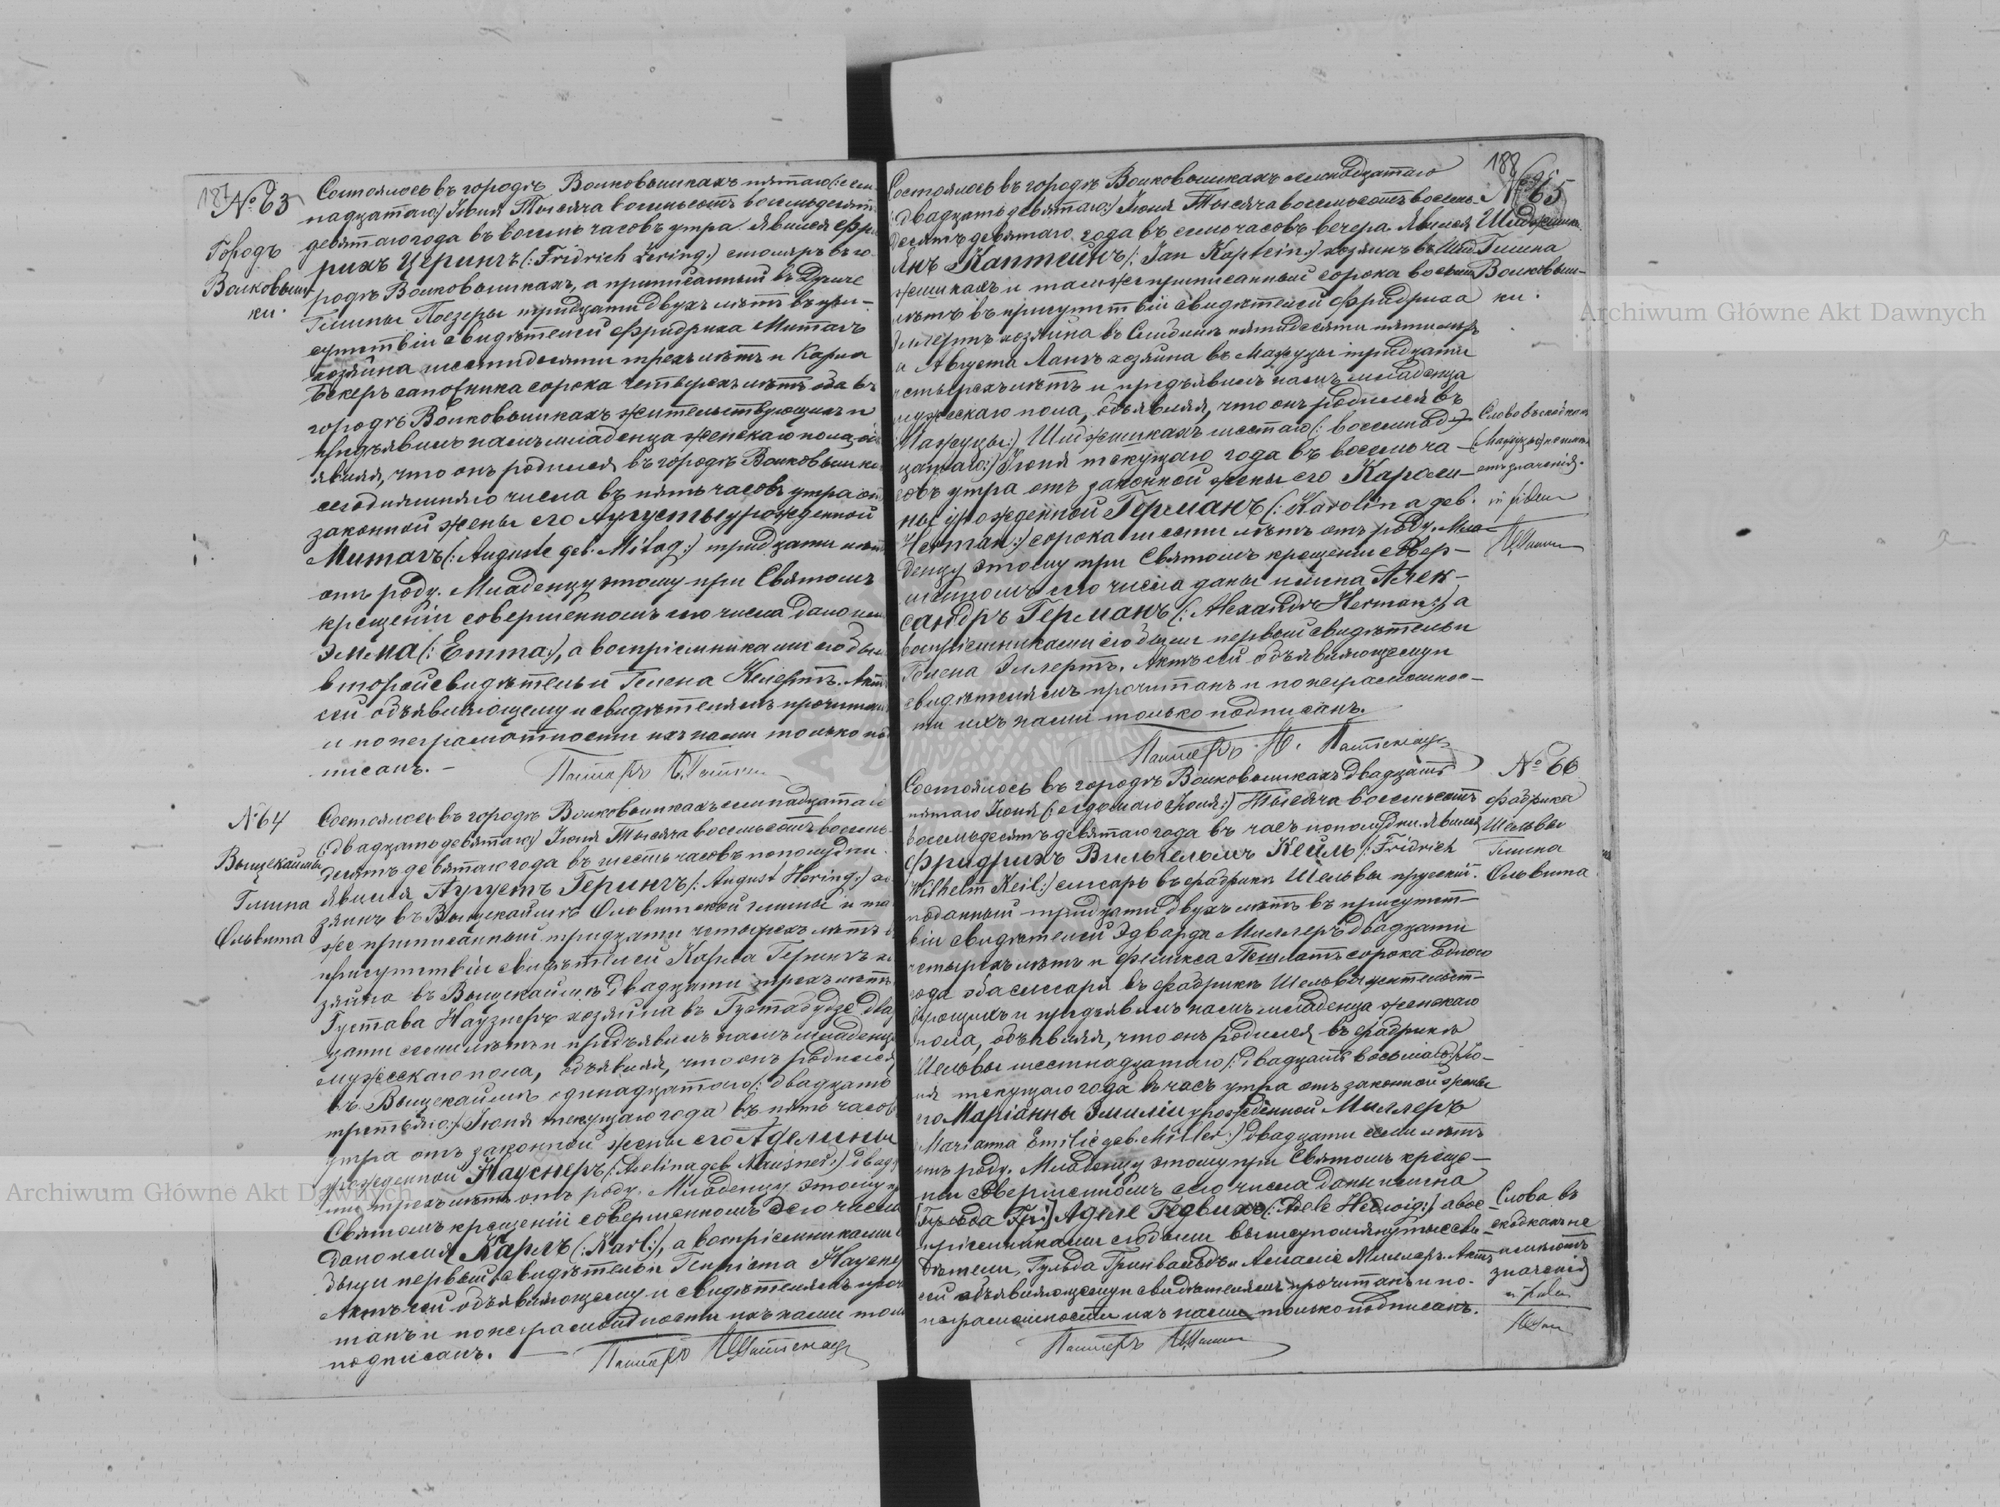 187
№ 63
Городъ
Волковыш-
ки.
Состоялось въ городѣ Волковышкахъ пятаго (: сем-
надцатаго) Іюня Тысяча восемьсотъ восемьдесятъ
девятаго года въ восемь часовъ утра. Явился Фри
рихъ Церингъ (: Fridrich Zering :) столяръ въ го-
родѣ Волковышкахъ, а приписанный въ
Гмины Поезеры тридцати двухъ лѣтъ въ при-
сутствіи свидѣтелей Фридриха Митагъ
хозяина шестидесяти трехъ лѣтъ и Карла
Бекеръ сапожника сорока четырехъ лѣтъ оба въ
городѣ Волковышкахъ жительствующихъ и
предъявилъ намъ младенца женскаго пола, об
являя, что онъ родился въ городѣ Волковышка
сегодняшняго числа въ пять часовъ утра от
законной жены его Аугусты урожденной
Митагъ (: Auguste geb. Mitag :) тридцати лѣт
отъ роду. Младенцу этому при Святомъ
крещеніи совершенномъ сего числа дано им
Эмма (: Emma :), а воспріемниками его бы
второй свидѣтель и Гелена Келертъ. Акт
сей объявляющему и свидѣтелямъ прочитан
и по неграмотности ихъ нами только по
писанъ. –
Пасторъ
№ 64
Гмина
Ольвита
Состоялось въ городѣ Волковышкахъ семнадцатаго
(: двадцать девятаго) Іюня Тысяча восемьсотъ восемь-
десятъ девятаго года въ шесть часовъ пополудни.
Явился Аугустъ Герингъ (: August Hering :) хо
зяинъ въ Выщекаймѣ Ольвитской гмины и та
же приписанный тридцати четырехъ лѣтъ в
присутствіи свидѣтелей Карла Герингъ хо
зяина въ Выщекаймѣ двадцати трехъ лѣтъ
Густава Наузнеръ хозяина въ Густабудзе два
цати семи лѣтъ и предъявилъ намъ младенца
мужескаго пола, объявляя, что онъ родился
въ Выщекаймѣ одинадцатаго (: двадцать
третьяго:) Іюня текущаго года въ пять часов
утра отъ законной жены его Аделины
рожденной Науснеръ (: Adelina geb. Nausner :) двад
ти трехъ лѣтъ отъ роду. Младенцу этому п
Святомъ крещеніи совершенномъ сего числа
дано имя Карлъ (: Karl :), а воспріемниками е
были первый свидѣтель и Генріета Наусне
Актъ сей объявляющему и свидѣтелямъ проч
танъ и по неграмотности ихъ нами толь
подписанъ. –
Пасторъ
188
№ 65
Гмина
Волковыш-
ки.
Состоялось въ городѣ Волковышкахъ семнадцатаго
(двадцать девятаго:) Іюня Тысяча восемьсотъ восемь-
десятъ девятаго года въ семь часовъ вечера. Явился
Янъ Каптейнъ (: Jan Kaptein :) хозяинъ въ Шид
жишкахъ и тамже приписанный сорока восьми
лѣтъ въ присутствіи свидѣтелей Фридриха
Эллертъ хозяина въ пятидесяти пяти лѣтъ
и Августа Лангъ хозяина въ Мажуцы тридцати
четырехъ лѣтъ и предъявилъ намъ младенца
мужескаго пола, объявляя, что онъ родился въ
(Мажуцы:) Шиджишкахъ шестаго (: восемнад-
цатаго:) Іюня текущаго года въ восемь ча-
совъ утра отъ законной жены его Кароли-
ны урожденной Германъ (: Karolina geb.
Herman :) сорока шести лѣтъ отъ роду. Мла-
денцу этому при Святомъ крещеніи совер-
шенномъ сего числа даны имена Алек-
сандръ Германъ (: Alexandr Herman :), а
воспріемниками его были первый свидѣтель и
Гелена Эллертъ. Актъ сей объявляющему и
свидѣтелямъ прочитанъ и по неграмотнос-
ти ихъ нами только подписанъ.
Пасторъ
Слово въ скобкахъ
(Мажуцы) не имѣ-
етъ значенія.
in fidem
№ 66
Фабрика
Шельвы
Гмина
Ольвита
Состоялось въ городѣ Волковышкахъ двадцать
пятаго Іюня (: седьмаго Іюля:) Тысяча восемьсотъ
восемьдесятъ девятаго года въ часъ пополудни. Явился
Фридрихъ Вильгельмъ Кейль (: Fridrich
Wilhelm Keil :) слесарь въ фабрикѣ Шельвы прусскій
подданный тридцати двухъ лѣтъ въ присутст-
віи свидѣтелей Эдварда Миллеръ двадцати
четырехъ лѣтъ и Феликса Пешлатъ сорока одного
года оба слесаря въ фабрикѣ Шельвы жительст-
вующихъ и предъявилъ намъ младенца женскаго
пола, объявляя, что онъ родился въ фабрикѣ
Шельвы шестнадцатаго (: двадцать восьмаго:) Ію-
ня текущаго года въ часъ утра отъ законной жены
его Маріанны Эмиліи урожденной Миллеръ
Marianna Emilie geb. Miller :) двадцати семи лѣтъ
отъ роду. Младенцу этому при Святомъ креще-
ніи совершенномъ сего числа даны имена
[Гульда Гри] Аделе Гедвихъ (: Adele Hedwig :) а вос-
пріемниками его были вышеупомянутые сви-
дѣтели, Гульда Гринвальдъ и Амаліе Миллеръ. Актъ
сей объявляющему и свидѣтелямъ прочитанъ и по-
неграмотности ихъ нами только подписанъ.
Пасторъ
Слова въ
скобкахъ не
имѣютъ
значенія
in fidem
Archiwum Główne Akt Dawnych
Archiwum Główne Akt Dawnych